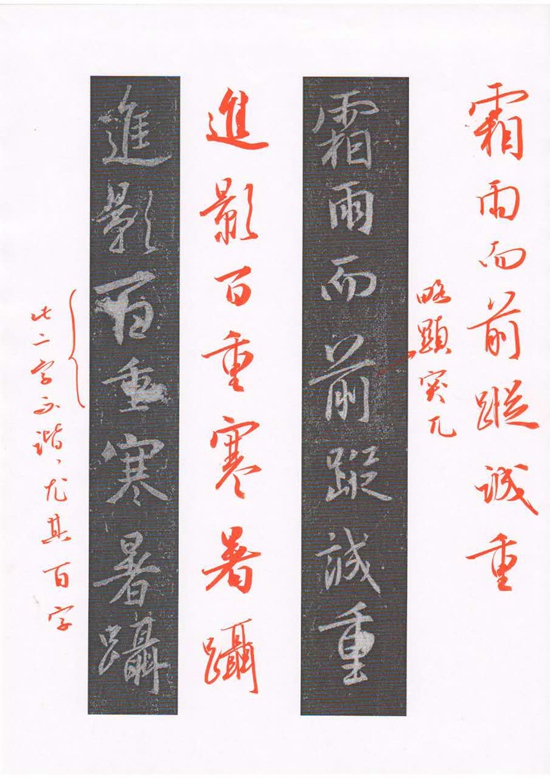 霜雨而前蹤誠重
略顯突兀
霜雨而前蹤誠重
進影百重寒暑躡
進影百重寒暑躡
此二字不谐、尤其百字